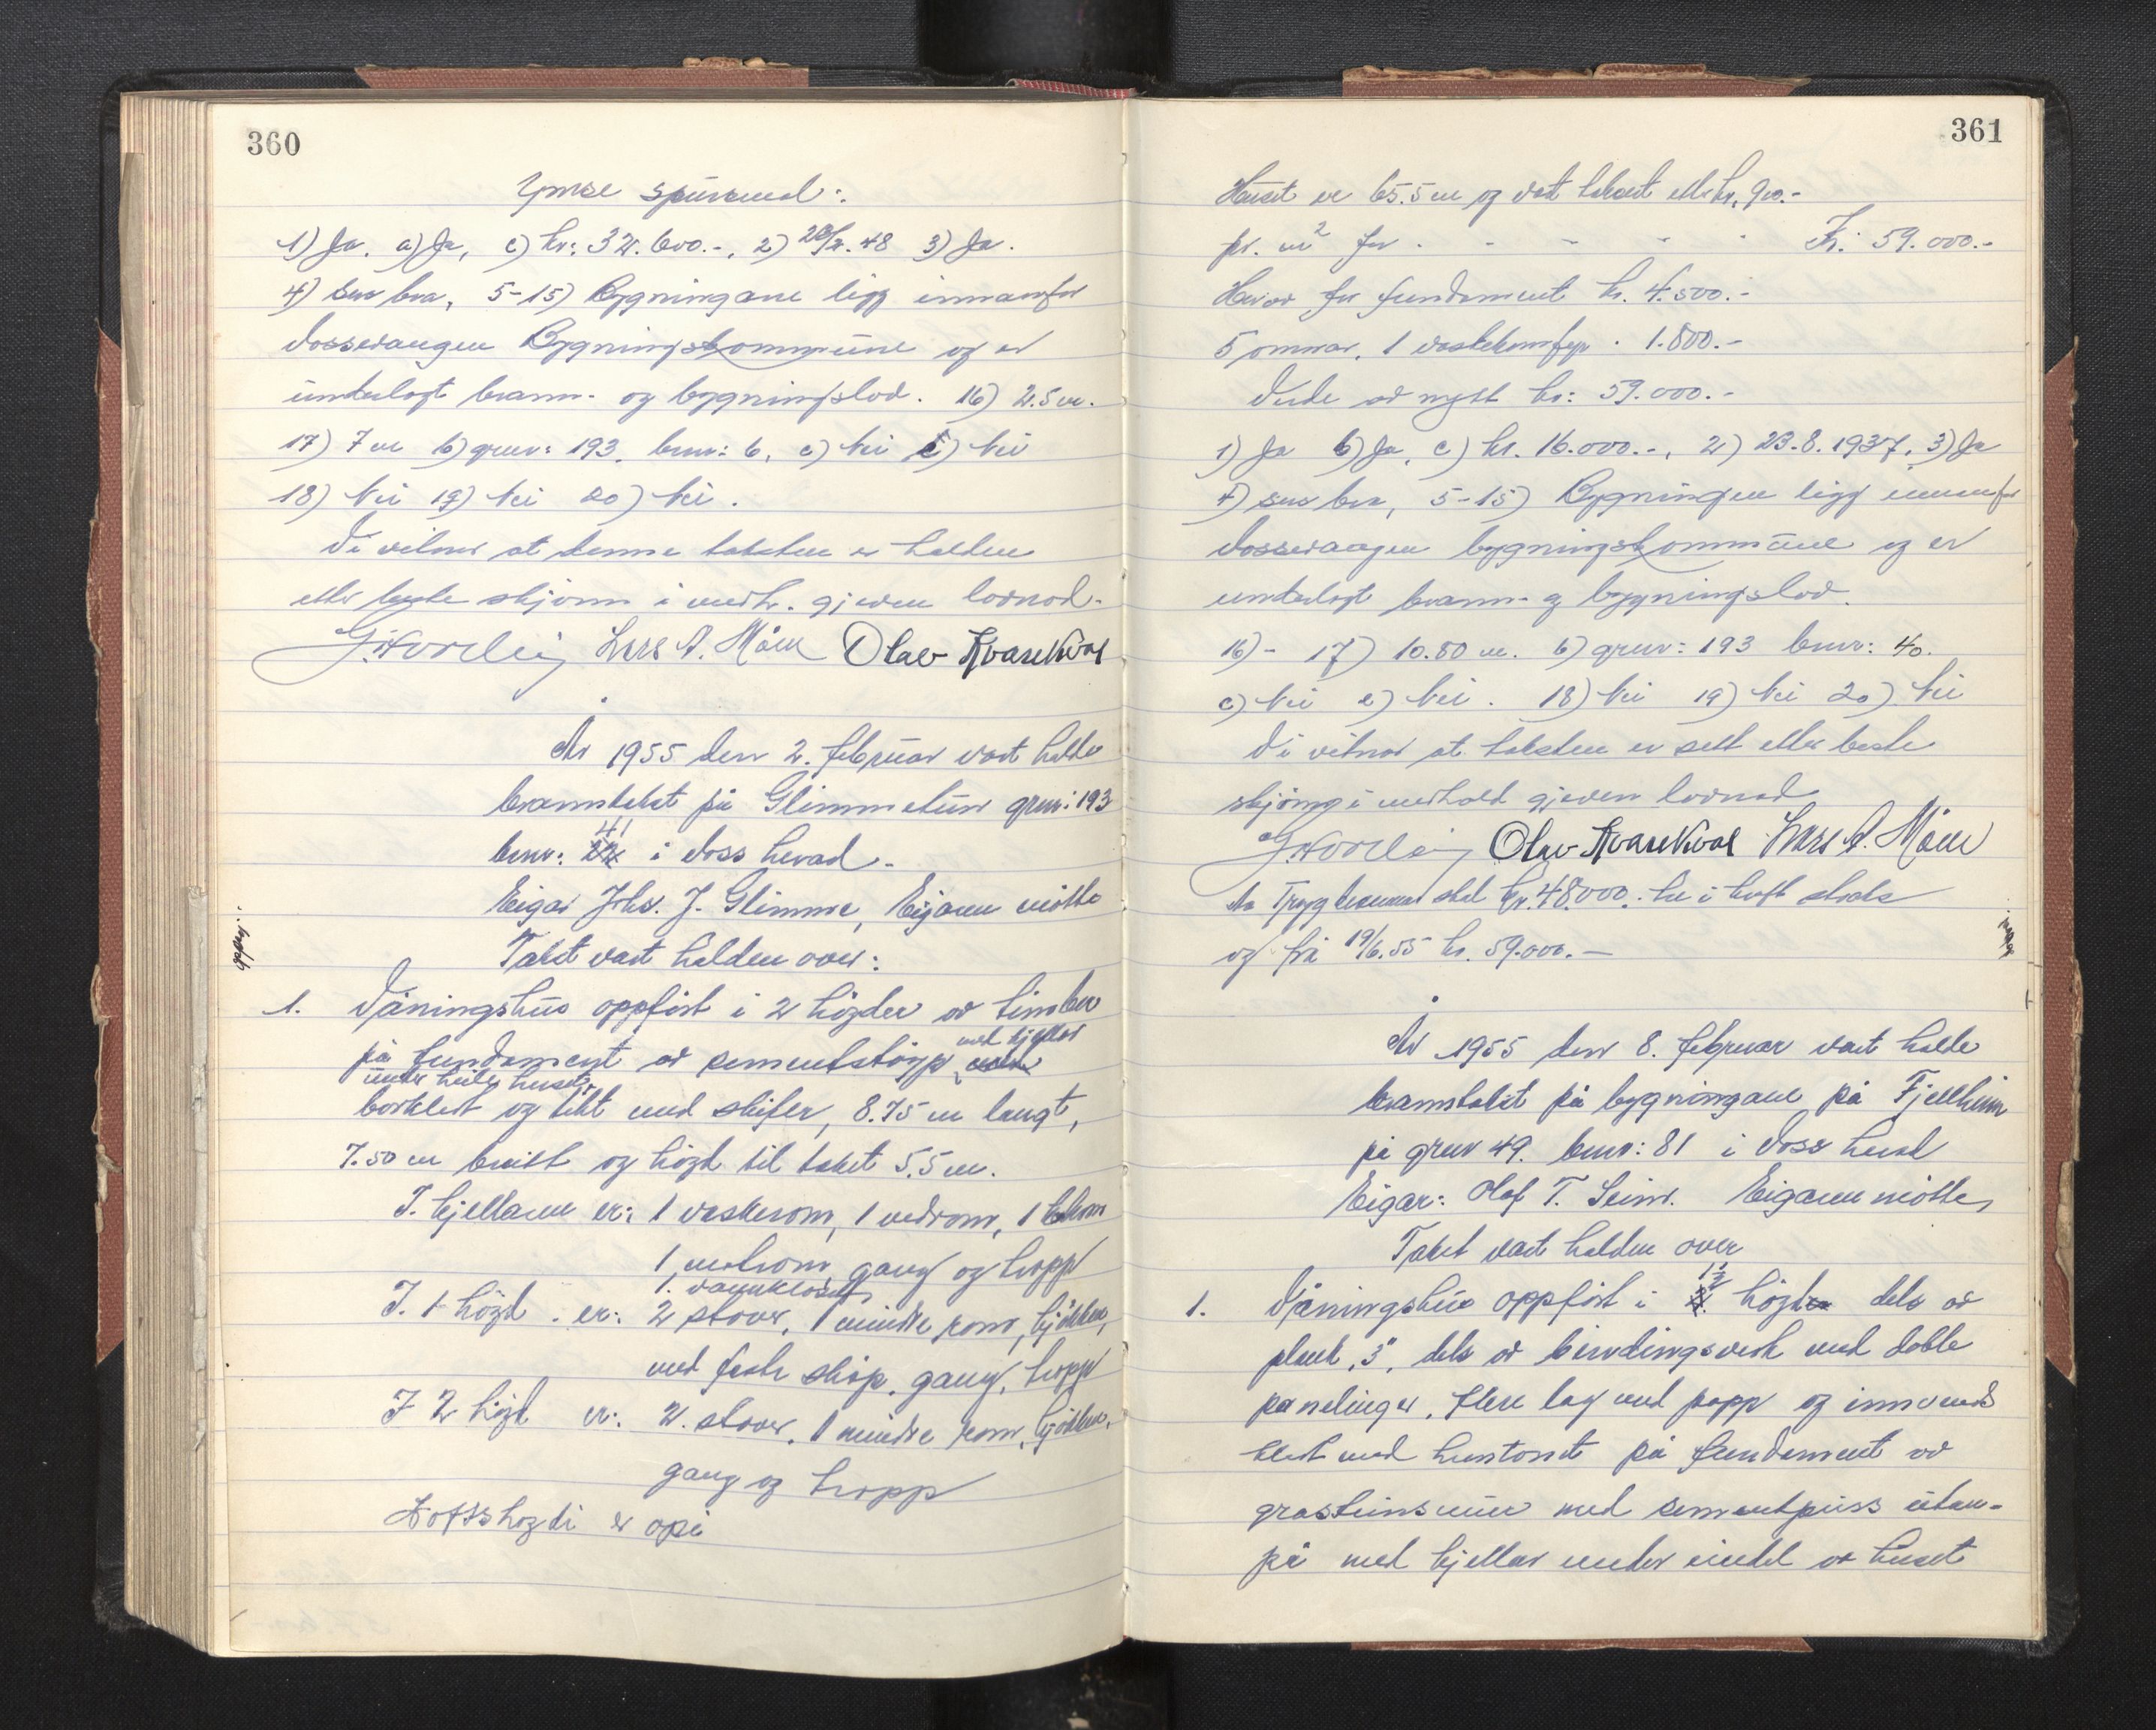 360
Ymse spursmål:
1) Ja. a) Ja, c) kr: 32.600.-, 2) 28/2.48 3) Ja.
4) Sers bra, 5-15) Bygningane ligg innanfor
Vossevangen Bygningskommune og er
underlagt brann- og bygningslov. 16) 2.5 m.
17) 7 m b) gnr: 193. bnr: 6, c) Nei e) Nei
18) Nei 19) Nei 20) Nei.
Vi vitnar at denne taksten er halden
etter beste skjønn i medh. gjeven lovnad.
Lars A. Måen Olav Kvarekvål
År 1955 den 2. februar vart halde
branntakst på Glimmetun gnr: 193
bnr: 41 i Voss herad.
Eigar Johs. J. Glimme, Eigaren møtte
Takst vart halden over:
1. Våningshus oppført i 2 høgder av timber
med kjellar
på fundament av sementstøyp
under heile huset,
bordkledt og tekt med skifer, 8.75 m langt,
7.50 m breidt og høgd til taket 5.5 m.
I. kjellaren er: 1 vaskerom, 1 vedrom, 1
1 matrom, gang og tropp
1. vannklosett,
I. 1 høgd. er: 2 stover, 1 mindre rom, kjøkken,
med faste skåp, gang, tropp
I 2 høgd er: 2. stover, 1 mindre rom, kjøkken,
gang og tropp
Loftshøgdi er opi
361
Huset er 65.5 m og vart taksert etter kr. 900.-
pr. m² for . - - - - Kr. 59.000.-
Herav for fundament kr. 4.500.-
5 omnar, 1 vaskekomfyr . 1.800.-
Verde av nytt kr: 59.000.-
1) Ja b) Ja, c) kr. 16.000.-, 2) 23.8.1937, 3) Ja
4) sers bra, 5-15) Bygningen ligg innanfor
Vossevangen bygningskommune og er
underlagt brann- og bygningslov.
16)- 17) 10.80 m. b) gnr: 193 bnr: 40.
c) Nei e) Nei. 18) Nei 19) Nei 20) Nei
Vi vitnar at taksten er sett etter beste
skjøng i medhald gjeven lovnad
Olav Kvarekvål Lars A. Måen
skal kr. 48.000.- i kraft straks
og frå 19/6.55 kr. 59.000.—
År 1955 den 8. februar vart halde
branntakst på bygningane på Fjellheim
på gnr 49. bnr: 81 i Voss herad
Eigar: Olaf T. Seim. Eigaren møtte,
Takst vart halden over
1. Våningshus oppført i 1½ høgd dels av
plank, 3", dels av bindingsverk med doble
panelinger, flere lag med papp og innvendes
kledt med huntonit på fundament av
gråsteinsmur med sementpuss utan-
på med kjellar under eindel av huset